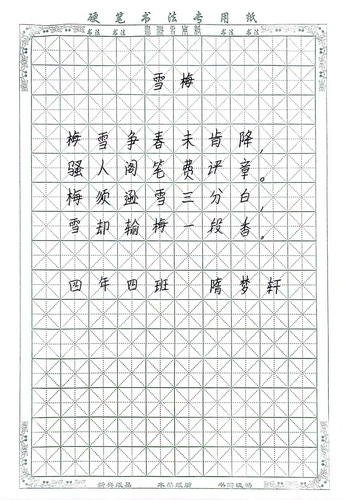 硬笔书法专用纸
雪梅
梅雪争春未肯降，
骚人阁笔费评章。
梅须逊雪三分白，
雪却输梅一段香。
四年四班 隋梦轩